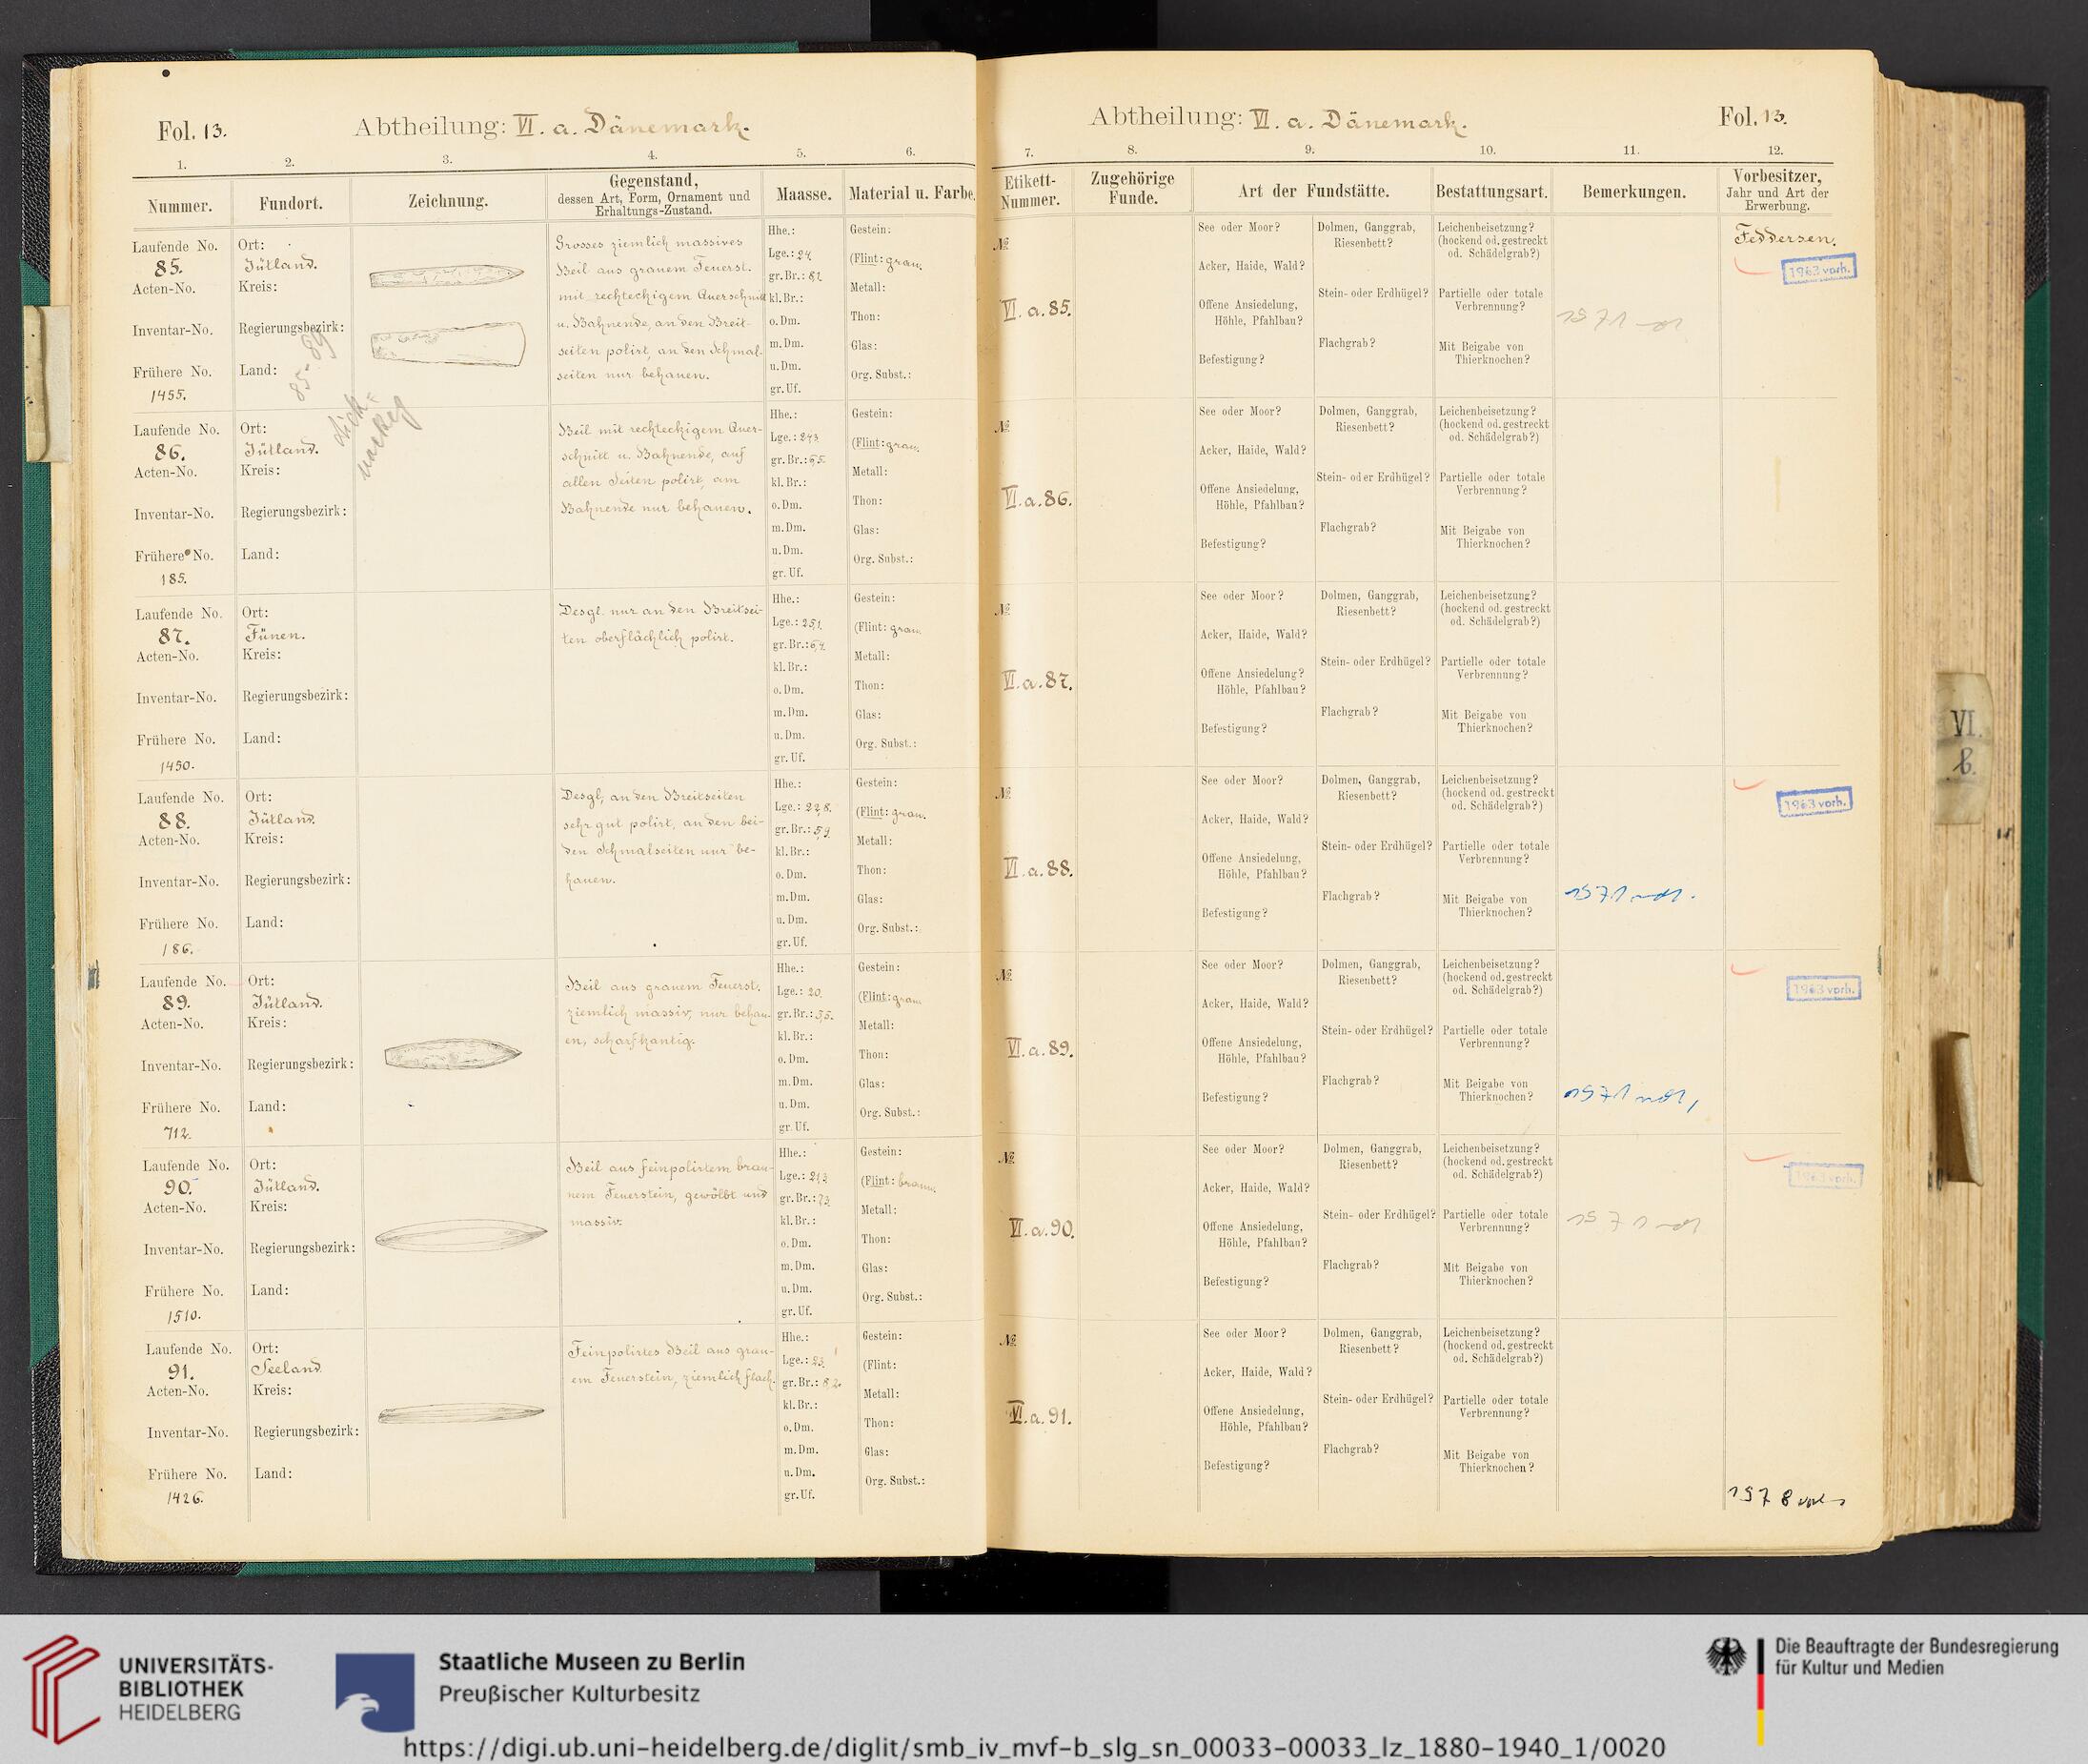 Fol. 13.
Abtheilung: VI. a. Dänemark.
1. 2. 3. 4. 5. 6.
Nummer.
Fundort.
Zeichnung.
Gegenstand,
dessen Art, Form, Ornament und
Erhaltungs-Zustand.
Maasse.
Material u. Farbe.
Laufende No.
85.
Acten-No.
Inventar-No.
Frühere No.
1455.
Ort:
Jütland.
Kreis:
Regierungsbezirk:
Land:
85-89
dick-
nackig
Grosses ziemlich massives
Beil aus grauem Feuerst.
mit rechteckigem Querschnitt
u. Bahnende, an den Breit-
seiten polirt, an den Schmal-
seiten nur behauen.
Hhe.:
Lge.: 24
gr. Br.: 82
kl. Br.:
o. Dm.
m. Dm.
u. Dm.
gr. Uf.
Gestein:
(Flint: grau.
Metall:
Thon:
Glas:
Org. Subst.:
Laufende No.
86.
Acten-No.
Inventar-No.
Frühere No.
185.
Ort:
Jütland.
Kreis:
Regierungsbezirk:
Land:
Beil mit rechteckigem Quer-
schnitt u. Bahnende, auf
allen Seiten polirt, am
Bahnende nur behauen.
Hhe.:
Lge.: 243
gr. Br.: 6,5.
kl. Br.:
o. Dm.
m. Dm.
u. Dm.
gr. Uf.
Gestein:
(Flint: grau.
Metall:
Thon:
Glas:
Org. Subst.:
Laufende No.
87.
Acten-No.
Inventar-No.
Frühere No.
1450.
Ort:
Fünen.
Kreis:
Regierungsbezirk:
Land:
Desgl. nur an den Breitsei-
ten oberflächlich polirt.
Hhe.:
Lge.: 25,1.
gr. Br.: 6,4
kl. Br.:
o. Dm.
m. Dm.
u. Dm.
gr. Uf.
Gestein:
(Flint: grau
Metall:
Thon:
Glas:
Org. Subst.:
Laufende No.
88.
Acten-No.
Inventar-No.
Frühere No.
186.
Ort:
Jütland.
Kreis:
Regierungsbezirk:
Land:
Desgl, an den Breitseiten
sehr gut polirt, an den bei-
den Schmalseiten nur be-
hauen.
Hhe.:
Lge.: 22,8.
gr. Br.: 5,9
kl. Br.:
o. Dm.
m. Dm.
u. Dm.
gr. Uf.
Gestein:
(Flint: grau.
Metall:
Thon:
Glas:
Org. Subst.:
Laufende No.
89.
Acten-No.
Inventar-No.
Frühere No.
712.
Ort:
Jütland.
Kreis:
Regierungsbezirk:
Land:
Beil aus grauem Feuerst.
ziemlich massiv, nur behau-
en, scharfkantig.
Hhe.:
Lge.: 20.
gr. Br.: 5,5.
kl. Br.:
o. Dm.
m. Dm.
u. Dm.
gr. Uf.
Gestein:
(Flint: grau
Metall:
Thon:
Glas:
Org. Subst.:
Laufende No.
90.
Acten-No.
Inventar-No.
Frühere No.
1510.
Ort:
Jütland.
Kreis:
Regierungsbezirk:
Land:
Beil aus feinpolirtem brau-
nem Feuerstein, gewölbt und
massiv.
Hhe.:
Lge.: 21,3
gr. Br.: 7,3
kl. Br.:
o. Dm.
m. Dm.
u. Dm.
gr. Uf.
Gestein:
(Flint: braun.
Metall:
Thon:
Glas:
Org. Subst.:
Laufende No.
91.
Acten-No.
Inventar-No.
Frühere No.
1426.
Ort:
Seeland
Kreis:
Regierungsbezirk:
Land:
Feinpolirtes Beil aus grau-
em Feuerstein, ziemlich flach.
Hhe.:
Lge.: 23
gr. Br.: 8,2.
kl. Br.:
o. Dm.
m. Dm.
u. Dm.
gr. Uf.
Gestein:
(Flint:
Metall:
Thon:
Glas:
Org. Subst.:
Abtheilung: VI. a. Dänemark.
Fol. 13.
7. 8. 9. 10. 11. 12.
Etikett-
Nummer.
Zugehörige
Funde.
Art der Fundstätte.
Bestattungsart.
Bemerkungen.
Vorbesitzer,
Jahr und Art der
Erwerbung.
№
VI. a. 85.
See oder Moor?
Acker, Haide, Wald?
Offene Ansiedelung,
Höhle, Pfahlbau?
Befestigung?
Dolmen, Ganggrab,
Riesenbett?
Stein- oder Erdhügel?
Flachgrab?
Leichenbeisetzung?
(hockend od. gestreckt
od. Schädelgrab?)
Partielle oder totale
Verbrennung?
Mit Beigabe von
Thierknochen?
1971 vorh
Feddersen.
1963 vorh.
№
VI. a. 86.
See oder Moor?
Acker, Haide, Wald?
Offene Ansiedelung,
Höhle, Pfahlbau?
Befestigung?
Dolmen, Ganggrab,
Riesenbett?
Stein- oder Erdhügel?
Flachgrab?
Leichenbeisetzung?
(hockend od. gestreckt
od. Schädelgrab?)
Partielle oder totale
Verbrennung?
Mit Beigabe von
Thierknochen?
№
VI. a. 87.
See oder Moor?
Acker, Haide, Wald?
Offene Ansiedelung?
Höhle, Pfahlbau?
Befestigung?
Dolmen, Ganggrab,
Riesenbett?
Stein- oder Erdhügel?
Flachgrab?
Leichenbeisetzung?
(hockend od. gestreckt
od. Schädelgrab?)
Partielle oder totale
Verbrennung?
Mit Beigabe von
Thierknochen?
№
VI. a. 88.
See oder Moor?
Acker, Haide, Wald?
Offene Ansiedelung,
Höhle, Pfahlbau?
Befestigung?
Dolmen, Ganggrab,
Riesenbett?
Stein- oder Erdhügel?
Flachgrab?
Leichenbeisetzung?
(hockend od. gestreckt
od. Schädelgrab?)
Partielle oder totale
Verbrennung?
Mit Beigabe von
Thierknochen?
1971 vorh.
1963 vorh.
№
VI. a. 89.
See oder Moor?
Acker, Haide, Wald?
Offene Ansiedelung,
Höhle, Pfahlbau?
Befestigung?
Dolmen, Ganggrab,
Riesenbett?
Stein- oder Erdhügel?
Flachgrab?
Leichenbeisetzung?
(hockend od. gestreckt
od. Schädelgrab?)
Partielle oder totale
Verbrennung?
Mit Beigabe von
Thierknochen?
1971 vorh,
1963 vorh.
№
VI. a. 90.
See oder Moor?
Acker, Haide, Wald?
Offene Ansiedelung,
Höhle, Pfahlbau?
Befestigung?
Dolmen, Ganggrab,
Riesenbett?
Stein- oder Erdhügel?
Flachgrab?
Leichenbeisetzung?
(hockend od. gestreckt
od. Schädelgrab?)
Partielle oder totale
Verbrennung?
Mit Beigabe von
Thierknochen?
1971 vorh
1963 vorh.
№
VI. a. 91.
See oder Moor?
Acker, Haide, Wald?
Offene Ansiedelung,
Höhle, Pfahlbau?
Befestigung?
Dolmen, Ganggrab,
Riesenbett?
Stein- oder Erdhügel?
Flachgrab?
Leichenbeisetzung?
(hockend od. gestreckt
od. Schädelgrab?)
Partielle oder totale
Verbrennung?
Mit Beigabe von
Thierknochen?
1978 vorh
VI.
b.
UNIVERSITÄTS-
BIBLIOTHEK
HEIDELBERG
Staatliche Museen zu Berlin
Preußischer Kulturbesitz
Die Beauftragte der Bundesregierung
für Kultur und Medien
https://digi.ub.uni-heidelberg.de/diglit/smb_iv_mvf-b_slg_sn_00033-00033_lz_1880-1940_1/0020